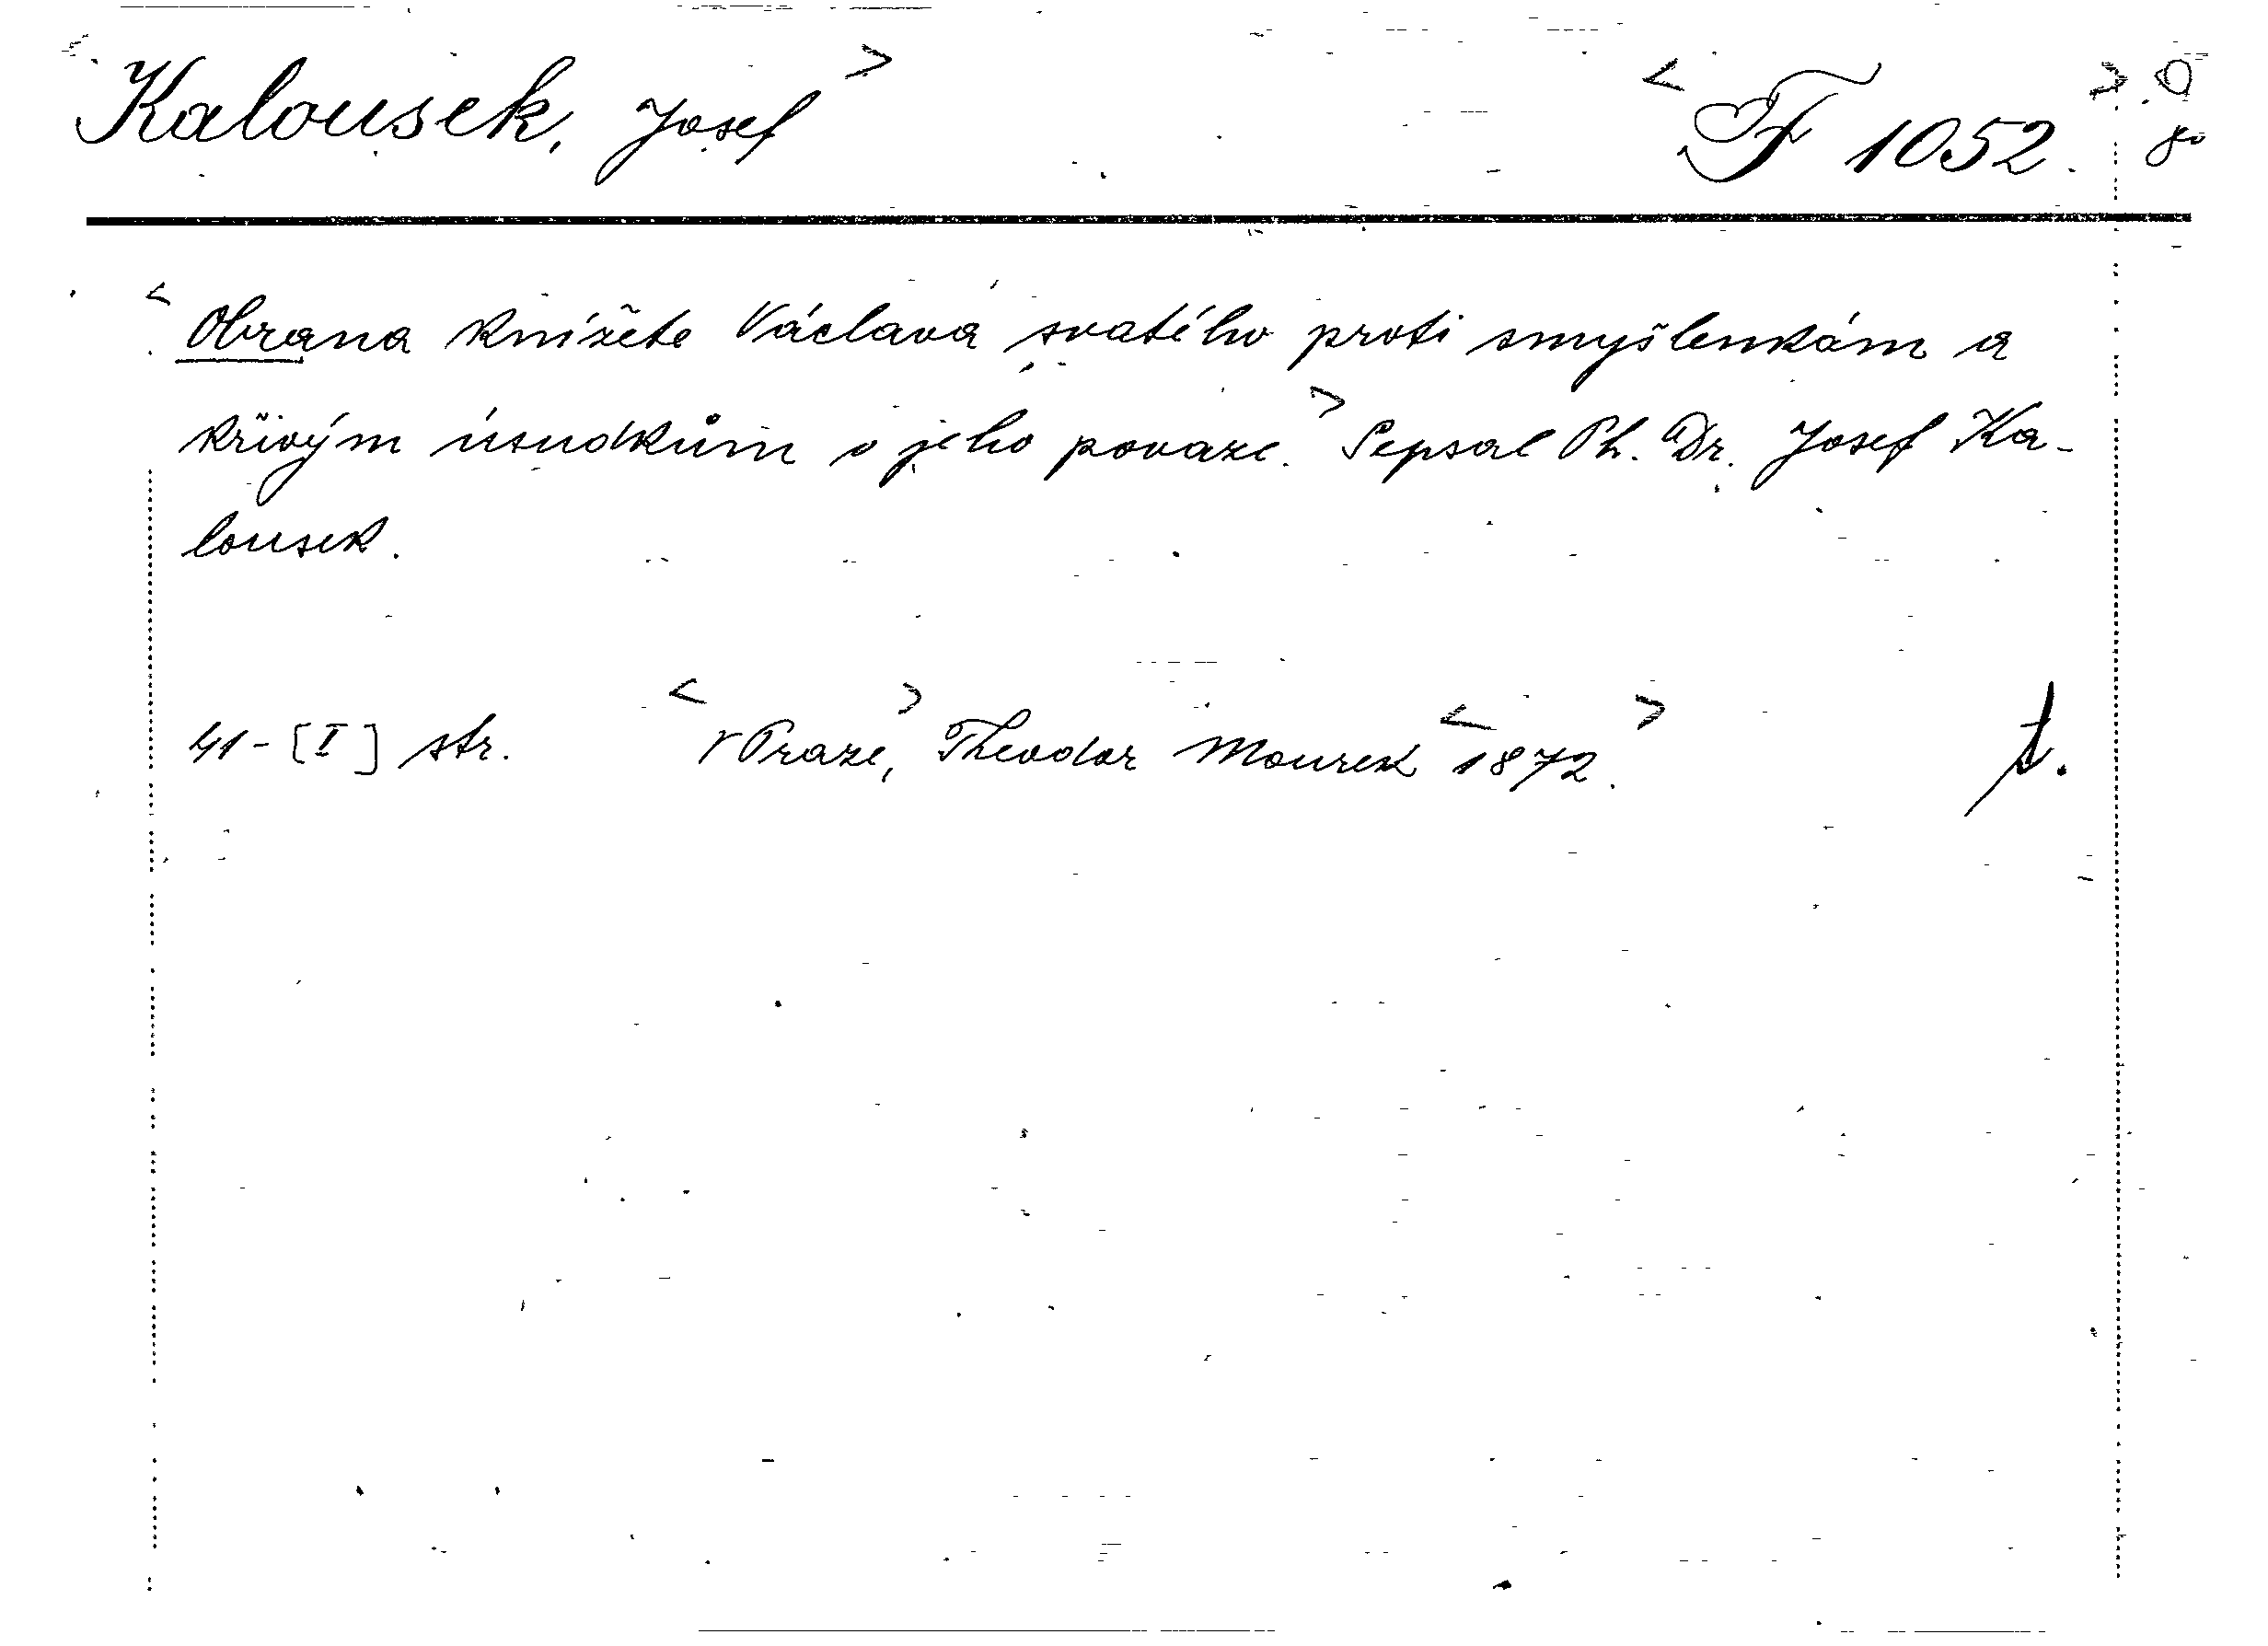 <Kalousek, Josef> <F 1052.>
<Obrana knížete Václava svatého proti smyšlenkám a
křivým úsudkům o jeho povaze.> Sepsal Ph. Dr. Josef Ka-
lousek.
41-[I] str. <V Praze,> Theodor Mourek <1872.> t.